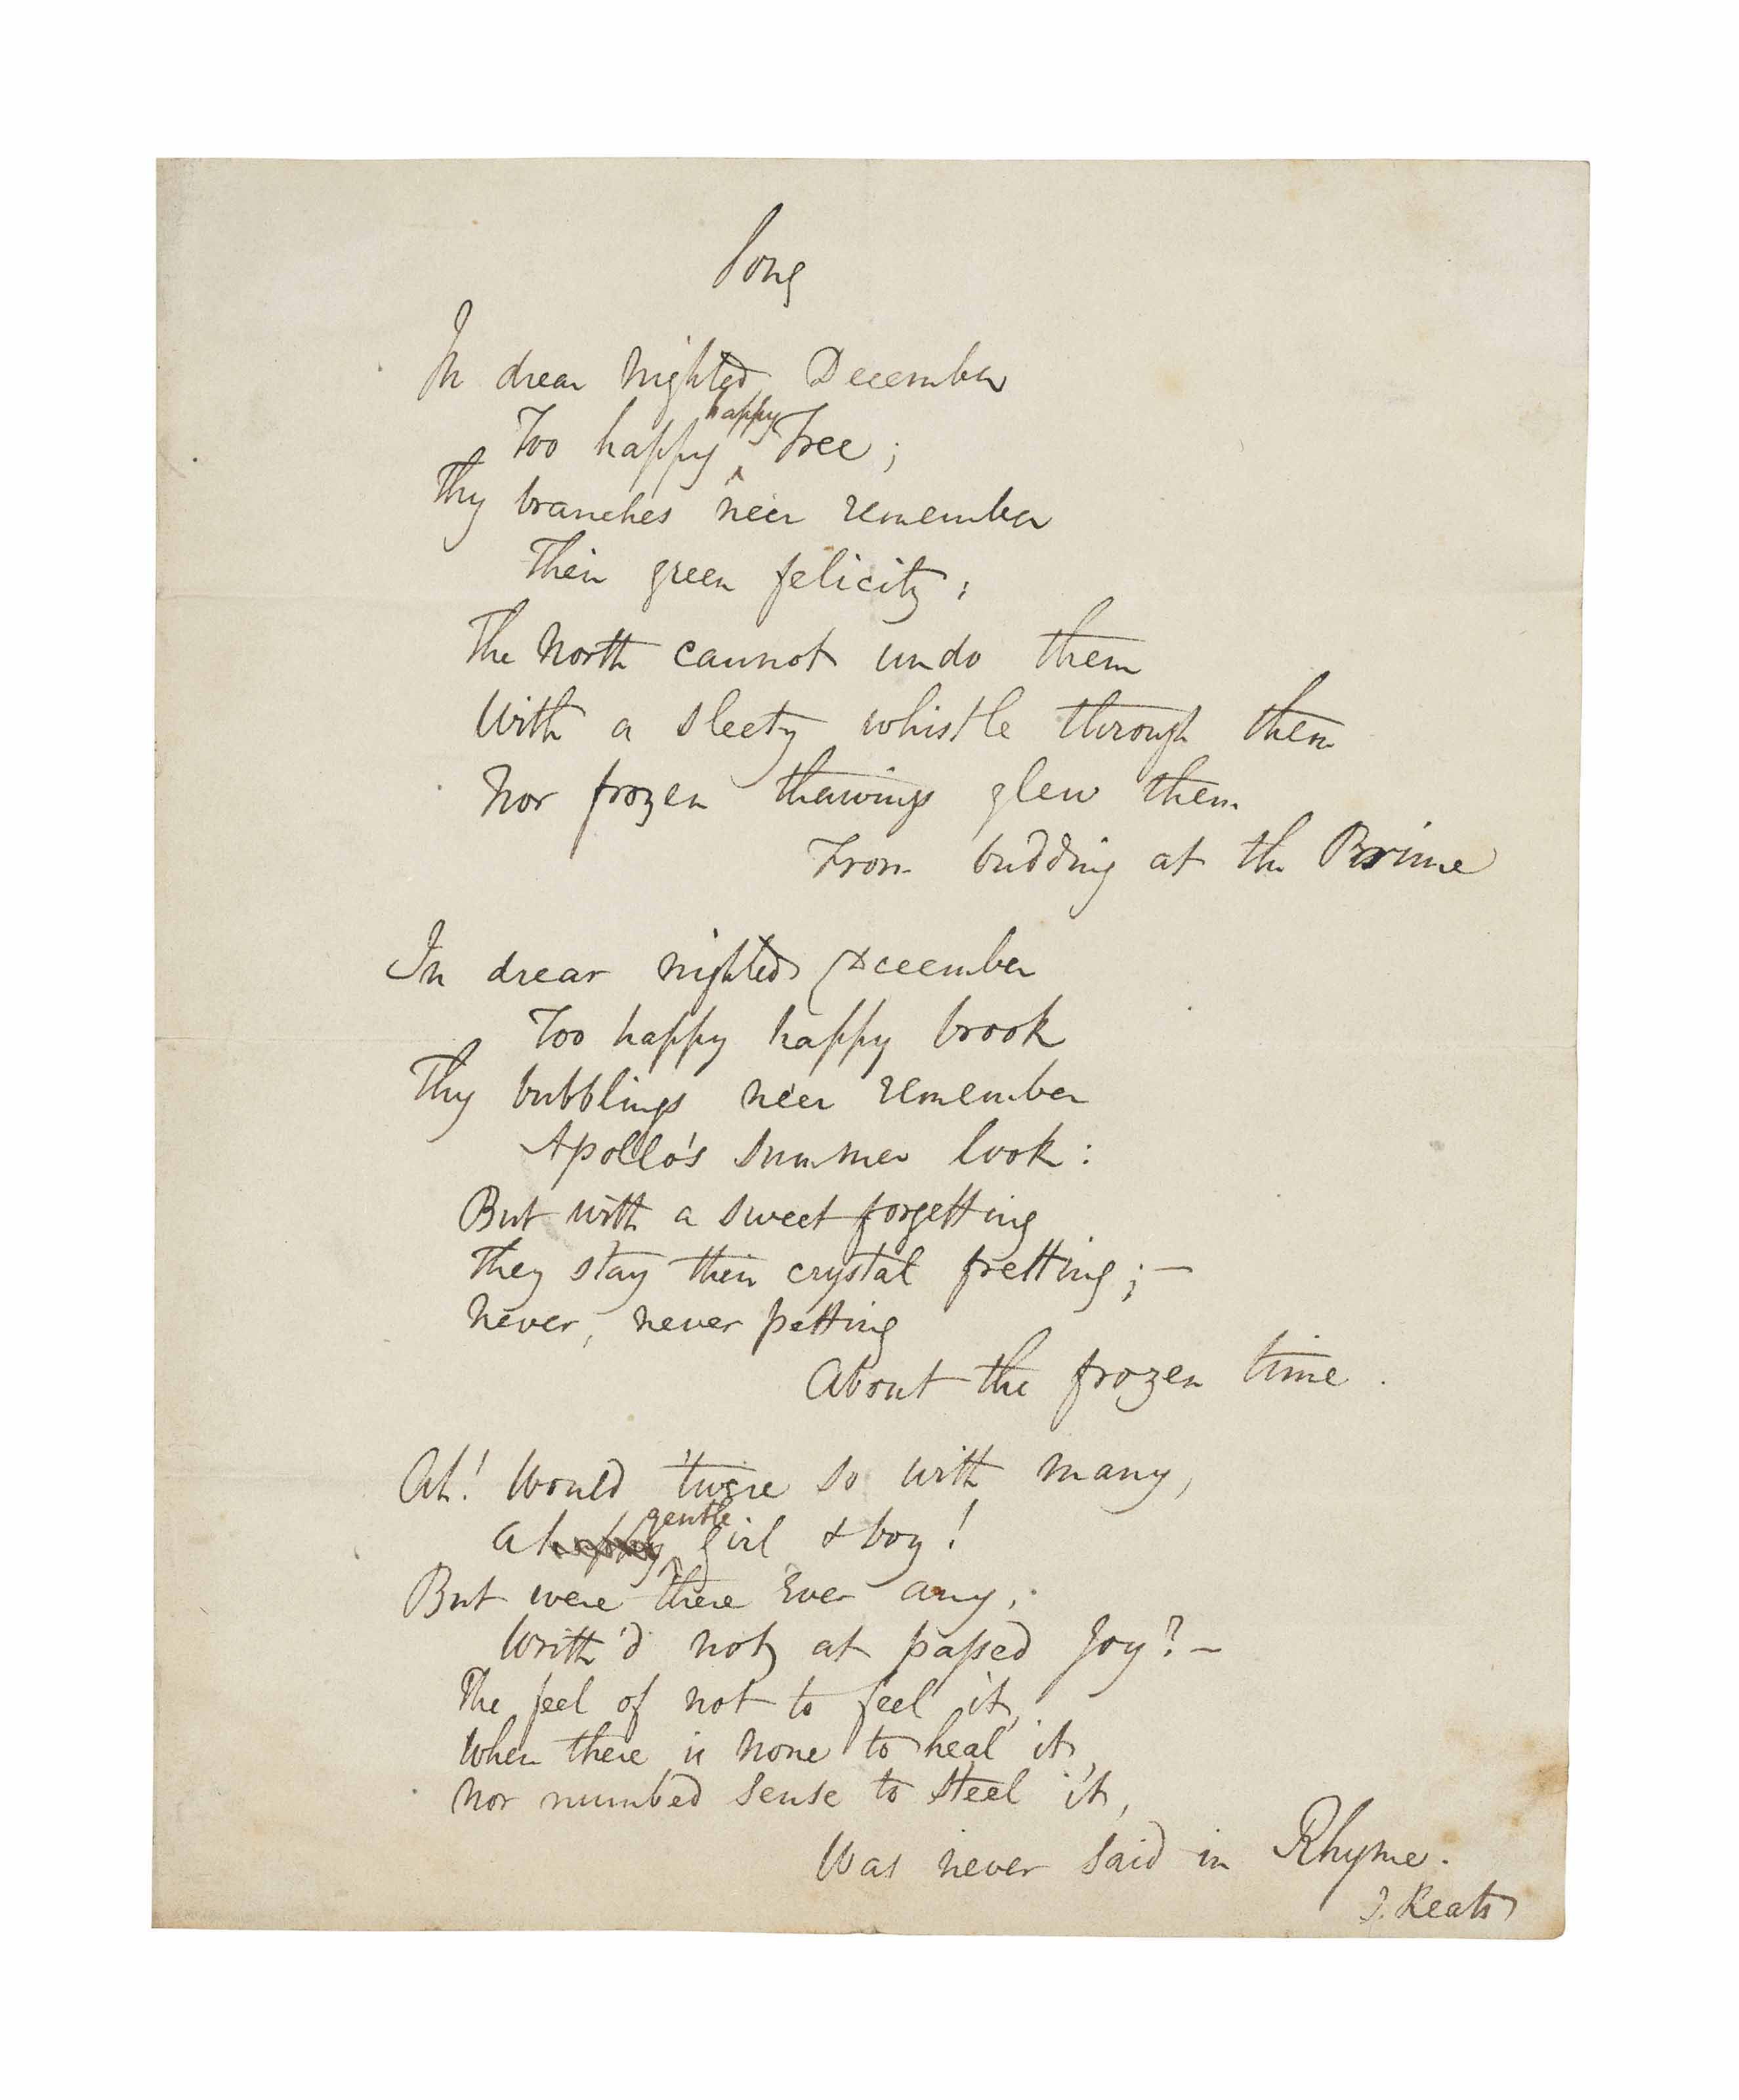 Song
In drear nighted December
Too happy happy Tree;
Thy branches ne'er remember
Their green felicity:
The North cannot undo them
With a sleety whistle through them
Nor frozen thawings glew them
From budding at the Prime
In drear nighted December
Too happy happy brook
Thy bubblings ne'er remember
Apollo's Summer look:
But with a sweet forgetting
They stay their crystal fretting;—
Never, never petting
About the frozen time.
Ah! Would 'twere so with many,
A happy gentle girl & boy!
But were there Ever any,
Writh'd not at passed Joy?—
The feel of not to feel it,
When there is none to heal it,
Nor numbed sense to steel it,
Was never said in Rhyme.
J. Keats